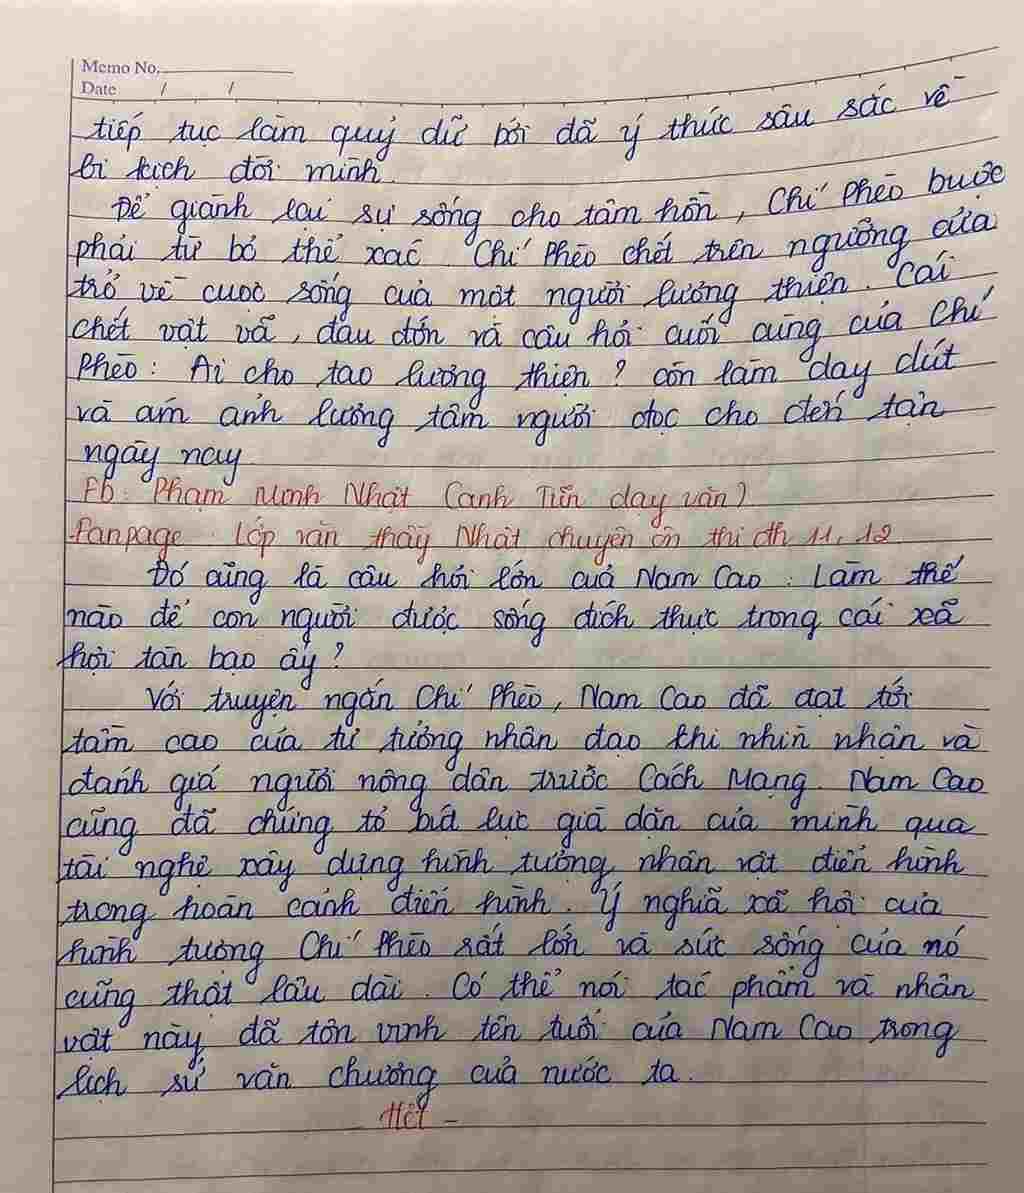 Memo No.
Date / /
tiếp tục làm quỷ dữ bởi đã ý thức sâu sắc về
bi kịch đời mình.
Để giành lại sự sống cho tâm hồn, Chí Phèo buộc
phải từ bỏ thể xác. Chí Phèo chết trên ngưỡng cửa
trở về cuộc sống của một người lương thiện. Cái
chết vật vã, đau đớn và câu hỏi cuối cùng của Chí
Phèo: Ai cho tao lương thiện? còn làm day dứt
và ám ảnh lương tâm người đọc cho đến tận
ngày nay
Fb: Phạm Minh Nhật (anh Tiễn dạy văn)
Fanpage: Lớp văn thầy Nhật chuyên ôn thi đh 11, 12.
Đó cũng là câu hỏi lớn của Nam Cao: Làm thế
nào để con người được sống đích thực trong cái xã
hội tàn bạo ấy?
Với truyện ngắn Chí Phèo, Nam Cao đã đạt tới
tầm cao của tư tưởng nhân đạo khi nhìn nhận và
đánh giá người nông dân trước Cách Mạng. Nam Cao
cũng đã chứng tỏ bút lực già dặn của mình qua
tài nghệ xây dựng hình tượng nhân vật điển hình
trong hoàn cảnh điển hình. Ý nghĩa xã hội của
hình tượng Chí Phèo rất lớn và sức sống của nó
cũng thật lâu dài. Có thể nói tác phẩm và nhân
vật này đã tôn vinh tên tuổi của Nam Cao trong
lịch sử văn chương của nước ta.
- Hết -